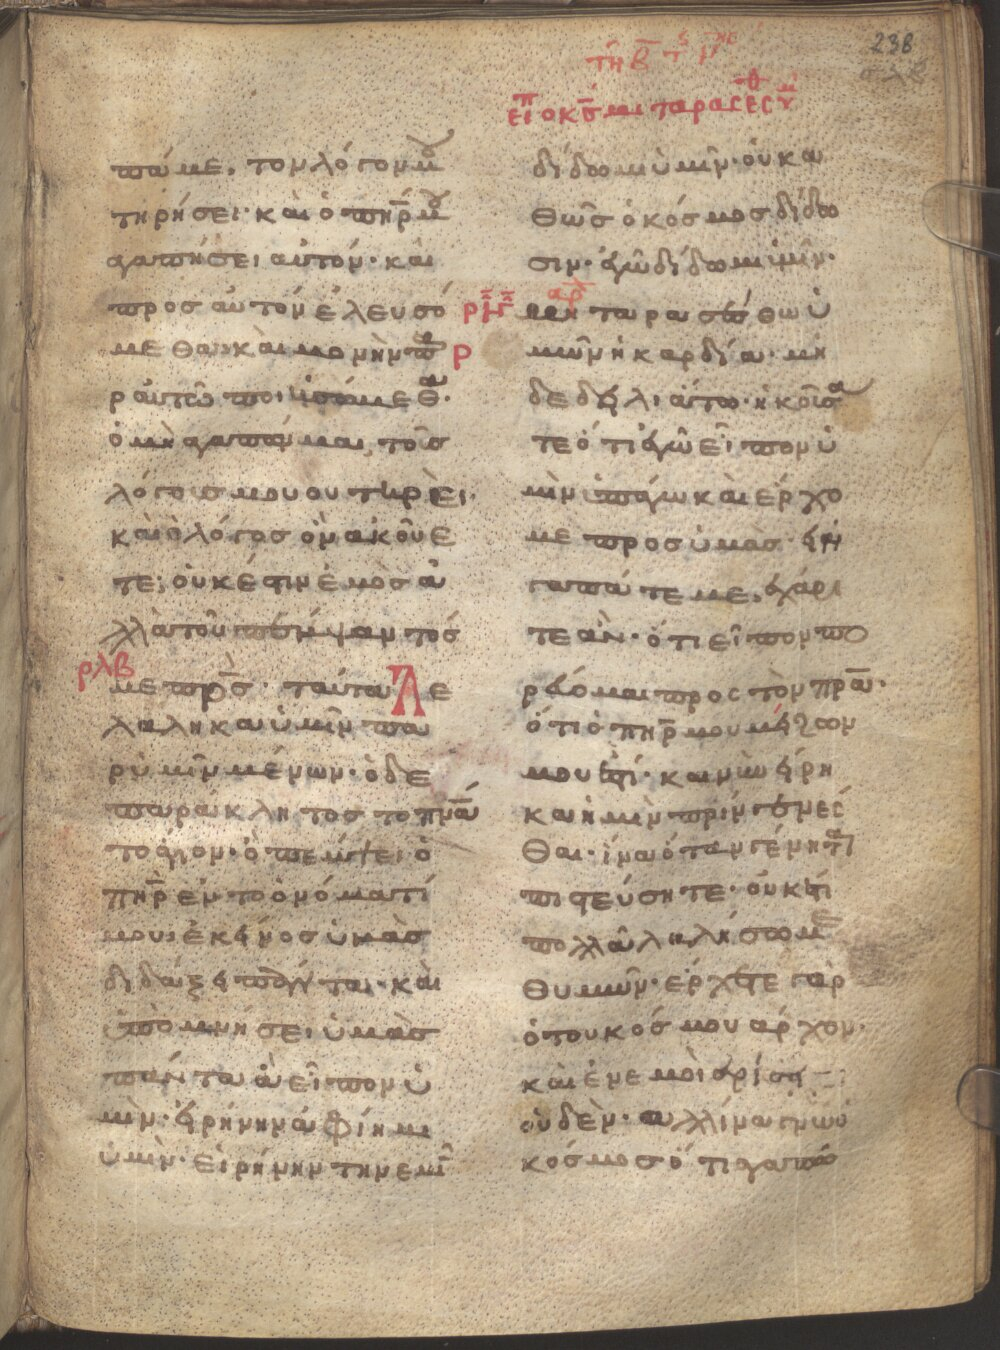 238
τῆ β τ ϛ
εἶπ ὁ κς μὴ ταρασσεσθ
πα με. τον λόγον μου
τηρήσει· καὶ ὁ πηρ μου
αγαπήσει αυτόν· και
προς αυτόν ἐλευσό
μεθα· και μονὴν πα
ρ αὐτῶ ποιησόμεθα·
ὁ μὴ αγαπῶν μαι, τοῦσ
λόγοισ μου ου τηρεῖ.
καὶ ὁ λόγοσ ὃν ακούε
τε, οὐκ έστιν ἐμὸσ ἀ
λλὰ τοῦ πέμψαντόσ
ρλβ
με πρσ· ταύτα λε
λαληκα ὑμῖν πα
ρ ὑμῖν μένων· ὁ δε
παρακλητοσ το πνα
το άγιον· ὃ πέμψει ὁ
πηρ ἐν το ὀνόματί
μου· ἐκεῖνοσ ὑμᾶσ
διδάξει πάντα· καὶ
ὑπομνήσει ὑμᾶσ
πάντα ἁ εἶπον ὑ
μῖν· εἰρήνην ἀφίημι
ὑμῖν· εἰρήνην την εμὴ
δίδωμι ὑμῖν· οὐ κα
θὼσ ὁ κόσμοσ δίδω
σιν· ἐγὼ δίδωμι ὑμῖν·
αρχ
ρλγ μη ταρασσέσθω ὑ
μῶν ἡ καρδία· μη
δε δειλιάτω· ηκούσα
τε ὅτι ἐγὼ εἶπον ὑ
μῖν ὑπάγω καὶ έρχο
με προσ ὑμᾶσ· εἰ ἠ
γαπάτε με, ἐχάρι
τε ἀν· ὅτι εἶπον πο
ρεύομαι προς τὸν πρα·
ὅτι ὁ πηρ μου μείζων
μου ἐστί· και νῦν εἴρη
κα ἡμῖν πρὶν γενέσ
θαι· ἱνα ὅταν γένηται
πιστεύσητε· ουκ ἔτι
πολλὰ λαλήσω με
θ υμῶν· ερχετε γαρ
ὁ του κόσμου αρχον·
καὶ ἐν εμοὶ
οὐδὲν· αλλ ίνα γνῶ ὁ
κόσμοσ ὅτι αγαπῶ